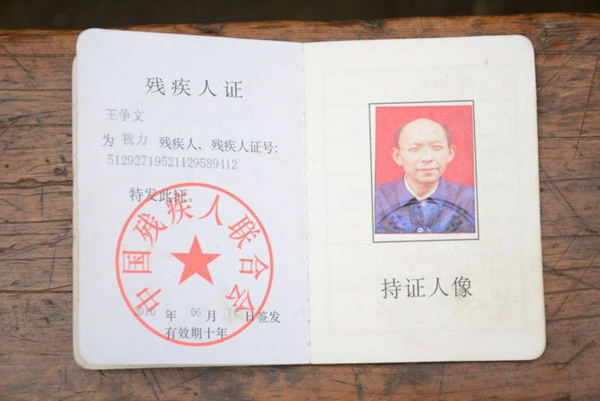 残疾人证
王争文
为 视力 残疾人，残疾人证号：
51292719521129589412
特发此证。
中国残疾人联合会
年 06 月 日签发
有效期十年
持证人像